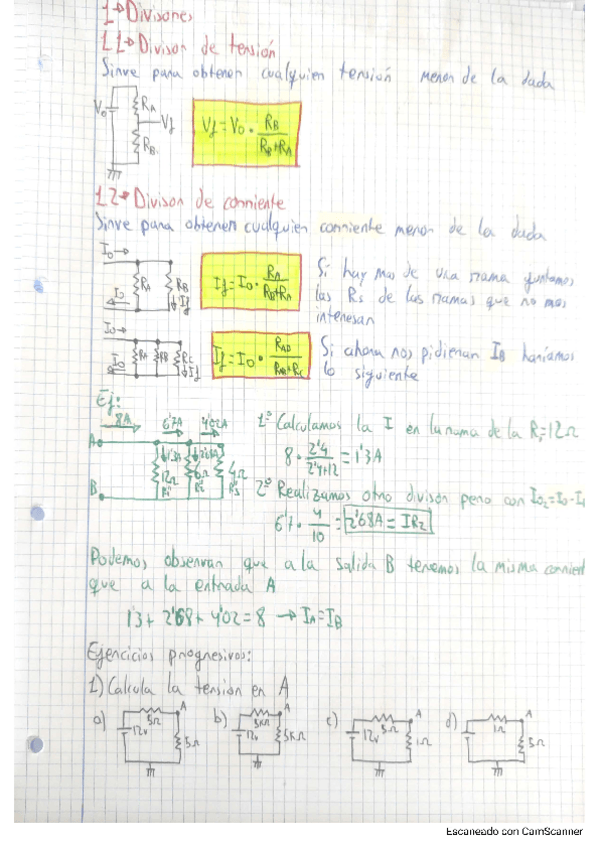 1→Divisores
1.1→Divisor de tensión
Sirve para obtener cualquier tensión menor de la dada
Vo RA Vf RB
Vf = Vo · RB / (RB+RA)
1.2→Divisor de corriente
Sirve para obtener cualquier corriente menor de la dada
Io RA RB If Io
If = Io · RA / (RB+RA)
Si hay mas de una rama juntamos
las Rs de las ramas que no nos
interesan
Io RA RB RC If Io
If = Io · RAB / (RAB+RC)
Si ahora nos pidieran IB haríamos
lo siguiente
Ej:
8A 6'7A 4'02A
A 1'3A 2'68A
12Ω 6Ω 4Ω
B R1 R2 R3
1º Calculamos la I en la rama de la R1=12Ω
8 · 2'4 / (2'4+12) = 1'3A
2º Realizamos otro divisor pero con Io2=Io-I1
6'7 · 4/10 = 2'68A = IR2
Podemos observar que a la salida B tenemos la misma corrient
que a la entrada A
1'3 + 2'68 + 4'02 = 8 → IA=IB
Ejercicios progresivos:
1) Calcula la tensión en A
a) 12v 5Ω A 5Ω
b) 12v 5KΩ A 5KΩ
c) 12v 5Ω A 1Ω
d) 1Ω A 5Ω
Escaneado con CamScanner